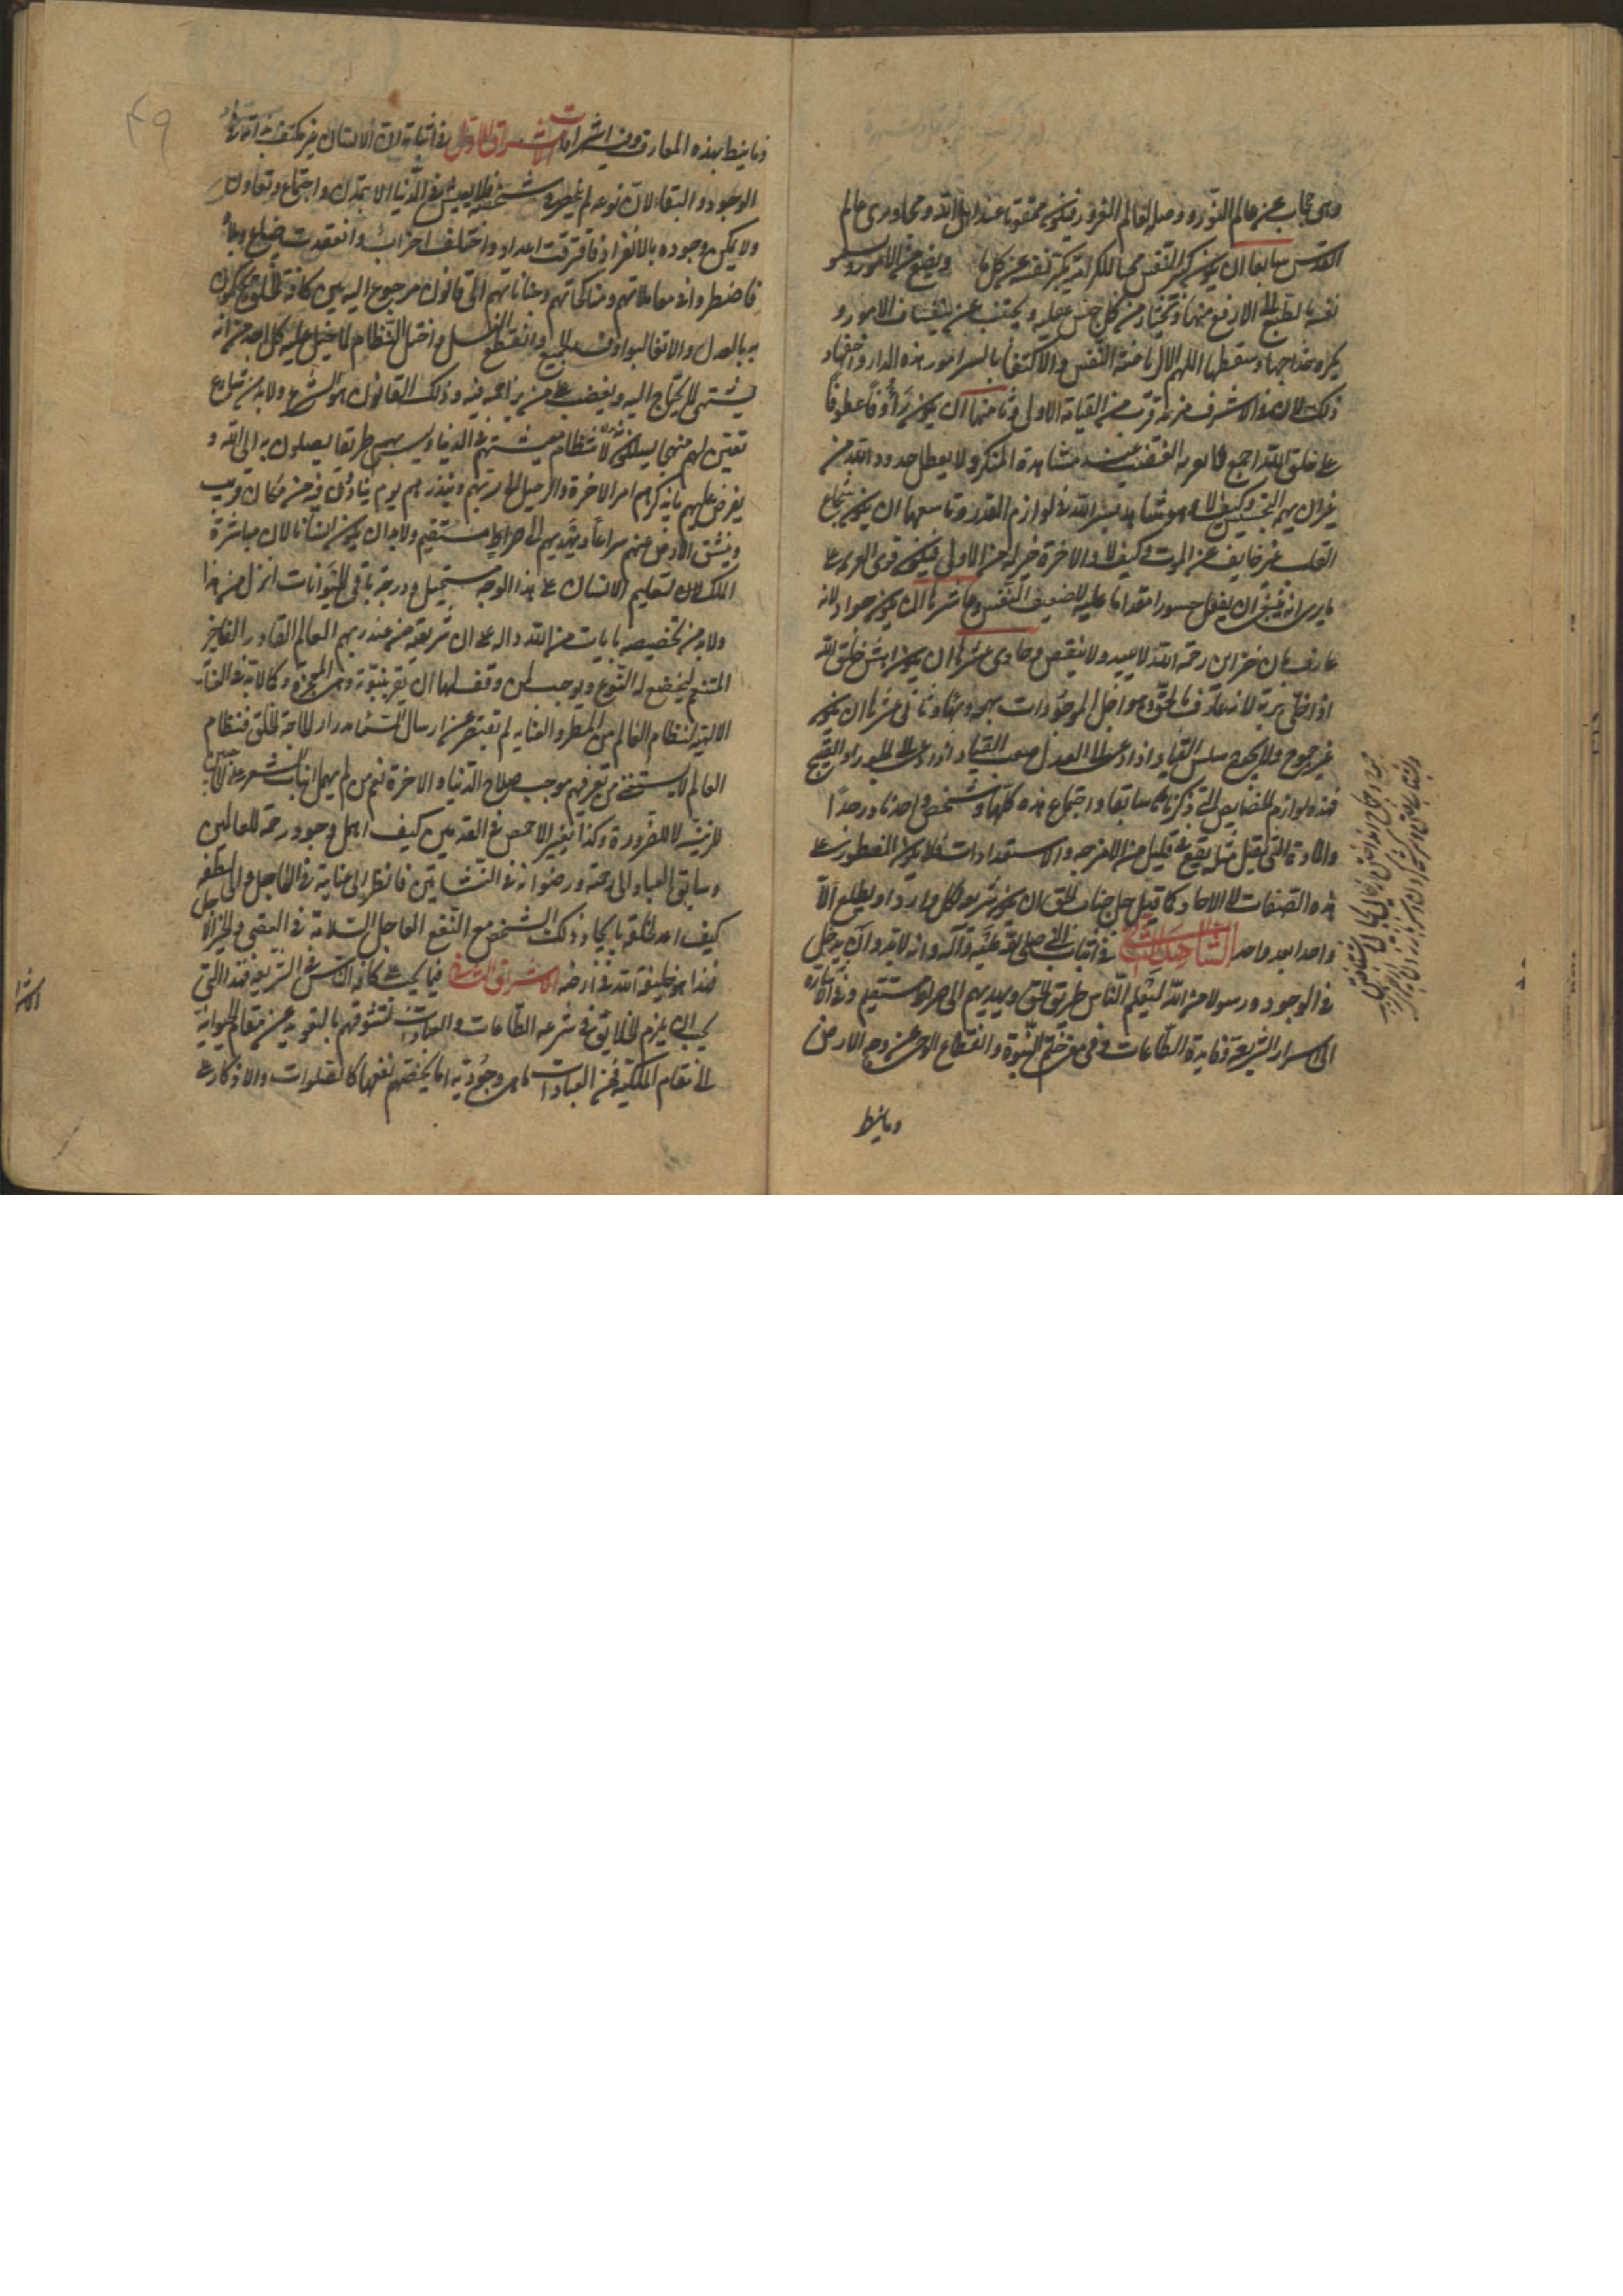 وهى حجاب عن عالم النور ووصلة لعالم الغرور فيكون ممقوتا عند اهل الله ومجاورى عالم
القدس سابعها ان يكون كبير النفس محبا للكرامة تكبر نفسه عن كل ما ويضع من الامور وتسمو
نفسه بالطبع الى الارفع منها ويختار من كل جنس عقيله ويجتنب عن سفساف الامور و
يكره خداجها وسقطها اللهم الا لرياضة النفس والاكتفاء بايسر امور هذه الدار واخفها و
ذلك لان فى الاشرف مزيد قرب من العناية الاولى وثامنها ان يكون رؤوفا عطوفا
على خلق الله اجمع لا يعتريه الغضب عند مشاهدة المنكر ولا يعطل حدود الله من
غير ان يهمه التجسس وكيف لا وهو شاهد لسر الله فى لوازم القدر وتاسعها ان يكون شجاع
القلب غير خايف عن الموت وكيف لا والاخرة خير له من الاولى فيكون قوى العزيمة على
ما يرى انه ينبغى ان يفعل جسورا مقداما عليه لا ضعيف النفس وعاشرها ان يكون جوادا لانه
عارف بان خزاين رحمة الله لا تبيد ولا تنقص وحادى عشرها ان يكون اهش خلق الله
اذا خلى بربه لانه عارف بالحق وهو اجل الموجودات بهجة وبهاء وثانى عشرها ان يكون
غير جموح ولا لجوج سلس القياد اذا دعى الى العدل صعب القياد اذا دعى الى الجور او القبيح
فهذه لوازم الخصايص التى ذكرناها سابقا واجتماع هذه كلها فى شخص واحد نادر جدا
والمادة التى تقبل مثله يقع فى قليل من الامزجه والاستعدادات فلا يكون المفطور على
هذه الصفات الا الاحاد كما قيل جل جناب الحق ان يكون شريعة لكل وارد او يطلع الا
واحدا بعد واحد الشاهد الثانى فى اثبات النبى صلى الله عليه وآله وانه لابد وان يدخل
فى الوجود رسولا من الله ليعلم الناس طريق الحق ويهديهم الى صراط مستقيم وفى الاشارة
الى اسرار الشريعة وفايدة الطاعات وفى معنى ختم النبوة وانقطاع الوحى عن وجه الارض
وما ينط
٤٩
وما ينط بهذه المعارف وفيه اشراقات الاشراق الاول فى اثباته ان الانسان غير مكتف بذاته فى
الوجود والبقاء لان نوعه لم ينحصر فى شخصه فلا يعيش فى الدنيا الا بتمدن واجتماع وتعاون
ولا يمكن وجوده بالانفراد فافترقت اعداد واختلف احزاب وانعقدت ضياع وبلاد
فاضطروا فى معاملاتهم ومناكحاتهم وجناياتهم الى قانون مرجوع اليه بين كافة الخلق يحكمون
به بالعدل والا تغالبوا وفسد الجميع وانقطع النسل واختل النظام لما جبل عليه كل احد من انه
يشتهى لما يحتاج اليه ويغضب على من يزاحمه فيه وذلك القانون هو الشرع ولابد من شارع
تعين لهم منهجا يسلكونه لانتظام معيشتهم فى الدنيا ويسن لهم طريقا يصلون به الى الله و
يفرض عليهم ما يذكرهم امر الاخرة والرحيل الى ربهم وينذرهم يوم ينادون فيه من مكان قريب
وينشق الارض عنهم سراعا ويهديهم الى صراط مستقيم ولابد ان يكون انسانا لان مباشرة
الملك لتعليم الانسان على هذا الوجه مستحيل ودرجة باقى الحيوانات انزل من هذا
ولابد من تخصيصه بايات من الله دالة على ان شريعته من عند ربهم العالم القادر الغافر
المنتقم ليخضع له النوع ويوجب لمن وقف لها ان يقر بنبوته وهى المعجزة وكما لابد فى العناية
الالهية لنظام العالم من المطر والعناية لم تقتصر عن ارسال السماء مدرارا لحاجة الخلق فنظام
العالم لا يستغنى عن من يعرفهم موجب صلاح الدنيا والاخرة نعم من لم يهمل انبات الشعر على الحاجبين
للزينة لا للضرورة وكذا تقعير الاخمص فى القدمين كيف اهمل وجود رحمة للعالمين
وسايق العباد الى رحمته ورضوانه فى النشأتين فانظر الى عنايته فى العاجل والى لطفه
كيف اعد لخلقه بايجاد ذلك الشخص مع النفع العاجل السلامة فى العقبى والخير الاجل
فهذا هو خليفة الله فى ارضه الاشراق الثانى فيما يجب على كافة الناس فى الشريعة فهذا النبى
يجب ان يلزم الخلايق فى شرعه الطاعات والعبادات لتشوقهم بالتعويد عن مقام الحيوانية
الى مقام الملكية فمن العبادات ما هى وجودية اما يخصهم نفعها كالصلوات والاذكار على